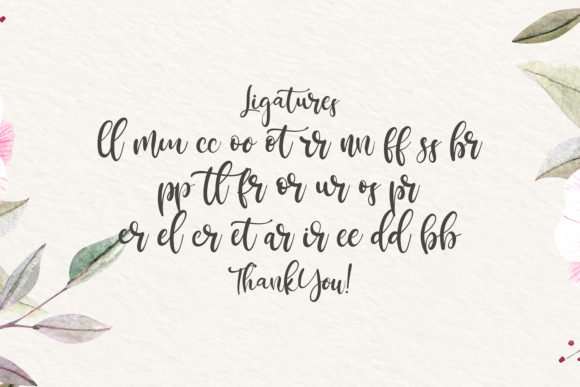 Ligatures
ll mm cc oo ot rr nn ff ss br
pp tl fr or ur os pr
er el er et ar ir ee dd bb
ThankYou!